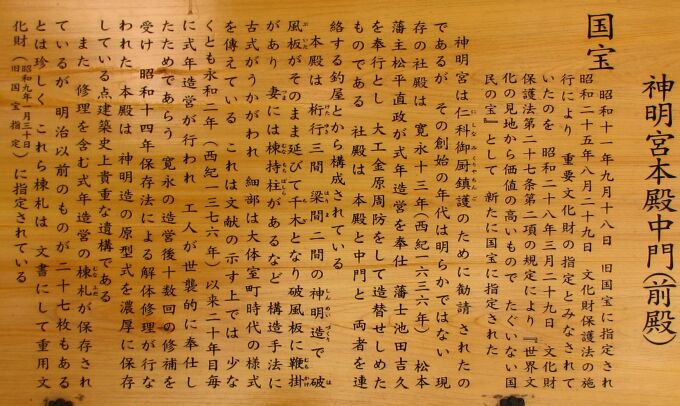 神明宮本殿中門(前殿)
国宝
昭和十一年九月十八日 旧国宝に指定され
昭和二十五年八月二十九日 文化財保護法の施
行により 重要文化財の指定とみなされて
いたのを 昭和二十八年三月二十九日 文化財
保護法第二十七条第二項の規定により『世界文
化の見地から価値の高いもので たぐいない国
民の宝』として 新たに国宝に指定された
神明宮は仁科御厨鎮護のために勧請されたの
であるが その創始の年代は明らかではない 現
存の社殿は 寛永十三年(西紀一六三六年) 松本
藩主松平直政が式年造営を奉仕 藩士池田吉久
を奉行とし 大工金原周防をして造替せしめた
ものである 社殿は 本殿と中門と 両者を連
絡する釣屋とから構成されている
本殿は 桁行三間 梁間二間の神明造で 破
風板がそのまま延びて千木となり破風板に鞭掛
があり 妻には棟持柱があるなど 構造手法に
古式がうかがわれ 細部は大体室町時代の様式
を傳えている これは文献の示す上では 少な
くとも永和二年(西紀一三七六年)以来二十年目毎
に式年造営が行われ 工人が世襲的に奉仕し
たためであらう 寛永の造営後十数回の修補を
受け 昭和十四年保存法による解体修理が行な
われた 本殿は 神明造の原型式を濃厚に保存
している点建築史上貴重な遺構である
また 修理を含む式年造営の棟札が保存され
ているが 明治以前のものが二十七枚もある
とは珍しく これら棟札は 文書にして重用文
化財(昭和九年一月三十日旧国宝指定)に指定されている